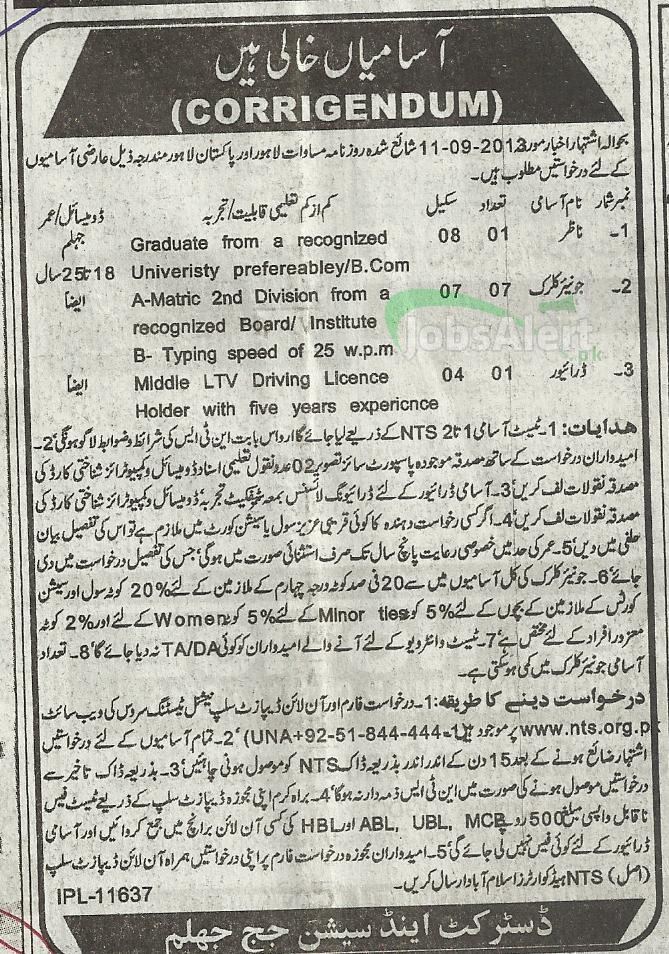 آسامیاں خالی ہیں
(CORRIGENDUM)
بحوالہ اشتہار اخبار مورخہ 11-09-2013 شائع شدہ روزنامہ مساوات لاہور اور پاکستان لاہور مندرجہ ذیل عارضی آسامیوں
کے لئے درخواستیں مطلوب ہیں۔
نمبر شمار نام آسامی تعداد سکیل کم از کم تعلیمی قابلیت/تجربہ ڈومیسائل/عمر
1۔ ناظر 01 08 Graduate from a recognized جہلم
Univeristy prefereabley/B.Com 18 تا 25 سال
2۔ جونیئر کلرک 07 07 A-Matric 2nd Division from a ایضاً
recognized Board/ Institute
B- Typing speed of 25 w.p.m
JobsAlert.pk
3۔ ڈرائیور 01 04 Middle LTV Driving Licence ایضاً
Holder with five years expericnce
هدایات: 1۔ ٹیسٹ آسامی 1 تا 2 NTS کے ذریعے لیا جائے گا اور اس بابت این ٹی ایس کی شرائط و ضوابط لاگو ہونگی' 2۔
امیدواران درخواست کے ساتھ مصدقہ موجودہ پاسپورٹ سائز تصویر 02 عدد نقول تعلیمی اسناد ڈومیسائل و کمپیوٹرائز شناختی کارڈ کی
مصدقہ نقولات لف کریں' 3۔ آسامی ڈرائیور کے لئے ڈرائیونگ لائسنس بمعہ سرٹیفکیٹ تجربہ' ڈومیسائل و کمپیوٹرائز شناختی کارڈ کی
مصدقہ نقولات لف کریں' 4۔ اگر کسی درخواست دہندہ کا کوئی قریبی عزیز سول یا سیشن کورٹ میں ملازم ہے تو اس کی تفصیل بیان
حلفی میں دیں' 5۔ عمر کی حد میں خصوصی رعایت پانچ سال تک صرف استثنائی صورت میں ہوگی' جس کی تفصیل درخواست میں دی
جائے' 6۔ جونیئر کلرک کی کل آسامیوں میں سے 20 فی صد کوٹہ درجہ چہارم کے ملازمین کے لئے' 20% کوٹہ سول اور سیشن
کورٹس کے ملازمین کے بچوں کے لئے' 5% کوٹہ Minor ties کے لئے' 5% کوٹہ Women کے لئے اور 2% کوٹہ
معزور افراد کے لئے مختص ہے' 7۔ ٹیسٹ و انٹرویو کے لئے آنے والے امیدواران کو کوئی TA/DA نہ دیا جائے گا' 8۔ تعداد
آسامی جونیئر کلرک میں کمی ہو سکتی ہے۔
درخواست دینے کا طریقہ: 1۔ درخواست فارم اور آن لائن ڈیپازٹ سلپ نیشنل ٹیسٹنگ سروس کی ویب سائٹ
www.nts.org.pk پر موجود ہیں۔ (UNA+92-51-844-444-1) ' 2۔ تمام آسامیوں کے لئے درخواستیں
اشتہار ضائع ہونے کے بعد 15 دن کے اندر اندر بذریعہ ڈاک NTS کو موصول ہونی چاہئیں' 3۔ بذریعہ ڈاک تاخیر سے
درخواستیں موصول ہونے کی صورت میں این ٹی ایس ذمہ دار نہ ہوگا' 4۔ براہ کرم اپنی مجوزہ ڈیپازٹ سلپ کے ذریعے ٹیسٹ فیس
ناقابل واپسی مبلغ 500 روپے ABL, UBL, MCB اور HBL کی کسی آن لائن برانچ میں جمع کروائیں اور آسامی
ڈرائیور کے لئے کوئی فیس نہیں لی جائے گی' 5۔ امیدواران مجوزہ درخواست فارم پر اپنی درخواستیں ہمراہ آن لائن ڈیپازٹ سلپ
(اصل) NTS ہیڈ کوارٹرز اسلام آباد ارسال کریں۔
IPL-11637
ڈسٹرکٹ اینڈ سیشن جج جہلم